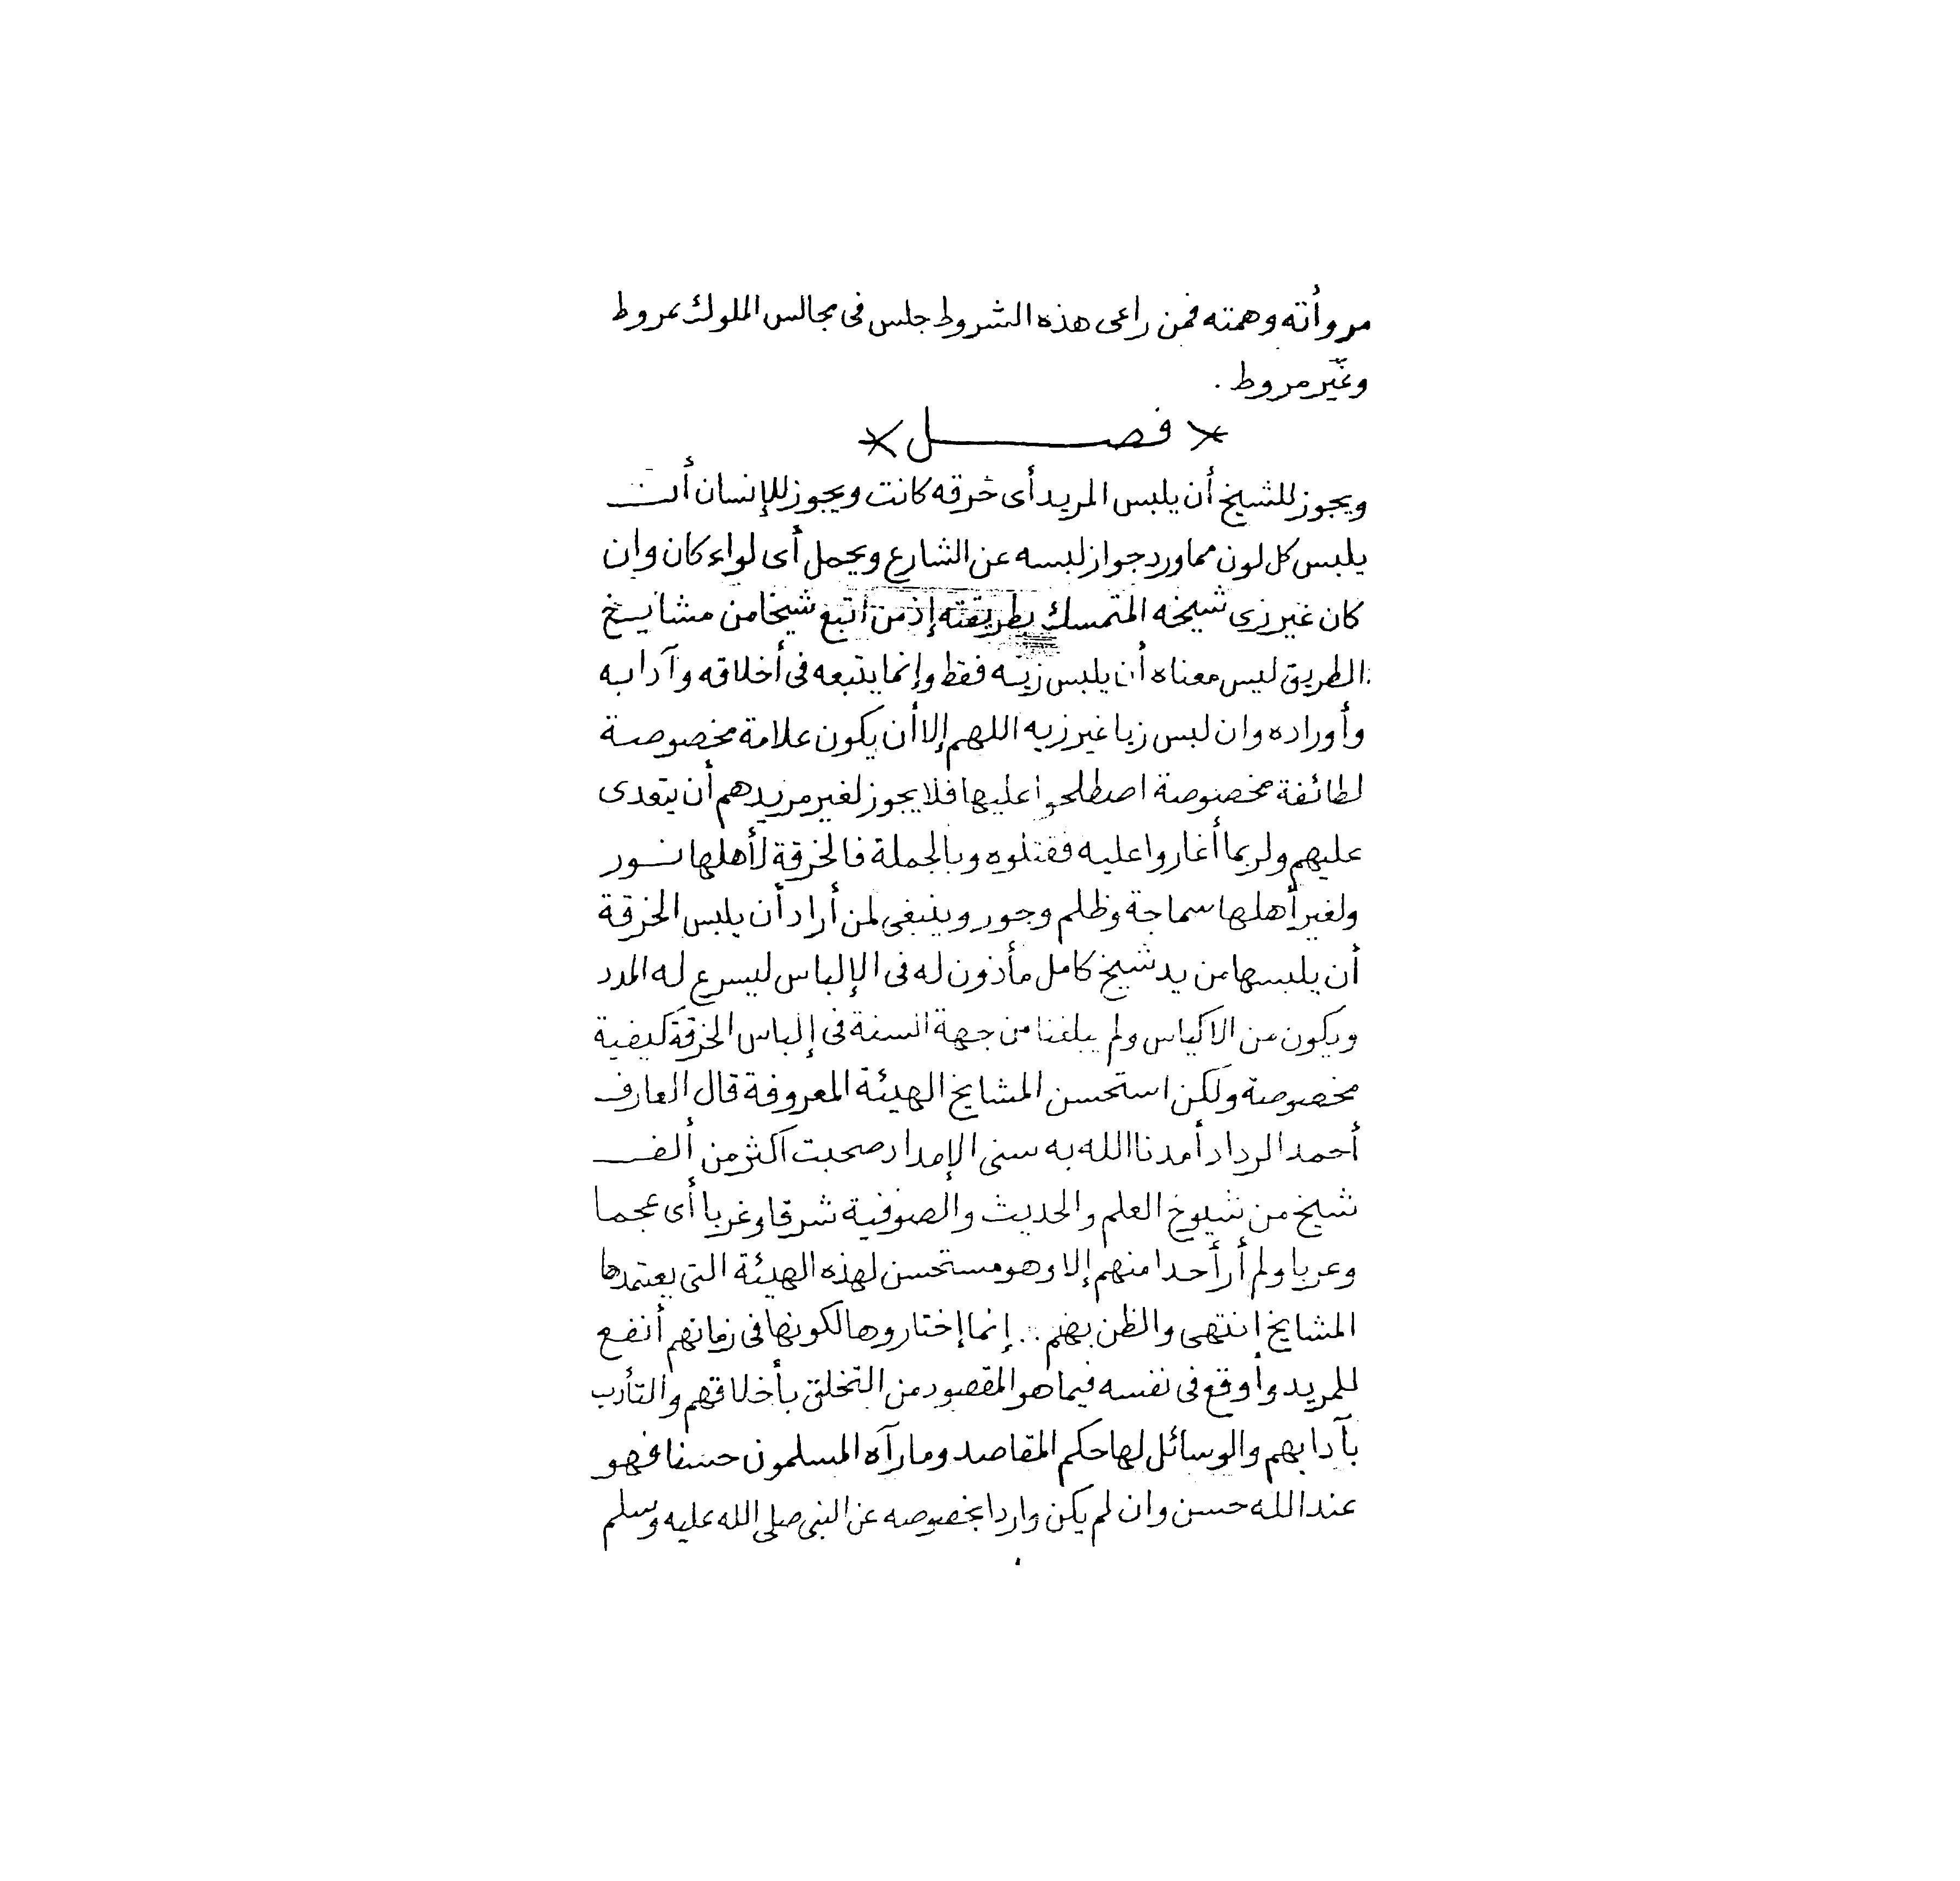 مروأته وهمته فمن راعى هذه الشروط جلس فى مجالس الملوك بمروط
وغير مروط .
* فصل *
ويجوز للشيخ أن يلبس المريد أى خرقه كانت ويجوز للإنسان أن
يلبس كل لون مما ورد جواز لبسه عن الشارع ويحمل أى لواء كان وان
كان غير زى شيخه المتمسك بطريقته إذ من اتبع شيخا من مشايخ
الطريق ليس معناه أن يلبس زيه فقط وإنما يتبعه فى أخلاقه وآدابه
وأوراده وان لبس زيا غير زيه اللهم إلا أن يكون علامة مخصوصة
لطائفة مخصوصة اصطلحوا عليها فلا يجوز لغير مريدهم أن يتعدى
عليهم ولربما أغاروا عليه فقتلوه وبالجملة فالخرقة لأهلها نور
ولغير أهلها سماجة وظلم وجور وينبغى لمن أراد أن يلبس الخرقة
أن يلبسها من يد شيخ كامل مأذون له فى الإلباس ليسرع له المدد
ويكون من الاكياس ولم يبلغنا من جهة السنة فى إلباس الخرقة كيفية
مخصوصة ولكن استحسن المشايخ الهيئة المعروفة قال العارف
أحمد الرداد أمدنا الله به سنى الإمداد صحبت أكثر من ألف
شيخ من شيوخ العلم والحديث والصوفية شرقا وغربا أى عجما
وعربا ولم أر أحدا منهم إلا وهو مستحسن لهذه الهيئة التى يعتمدها
المشايخ انتهى والظن بهم .. إنما إختاروها لكونها فى زمانهم أنفع
للمريد وأوقع فى نفسه فيما هو المقصود من التخلق بأخلاقهم والتأدب
بآدابهم والوسائل لها حكم المقاصد وما رآه المسلمون حسنا فهو
عند الله حسن وان لم يكن واردا بخصوصه عن النبى صلى الله عليه وسلم